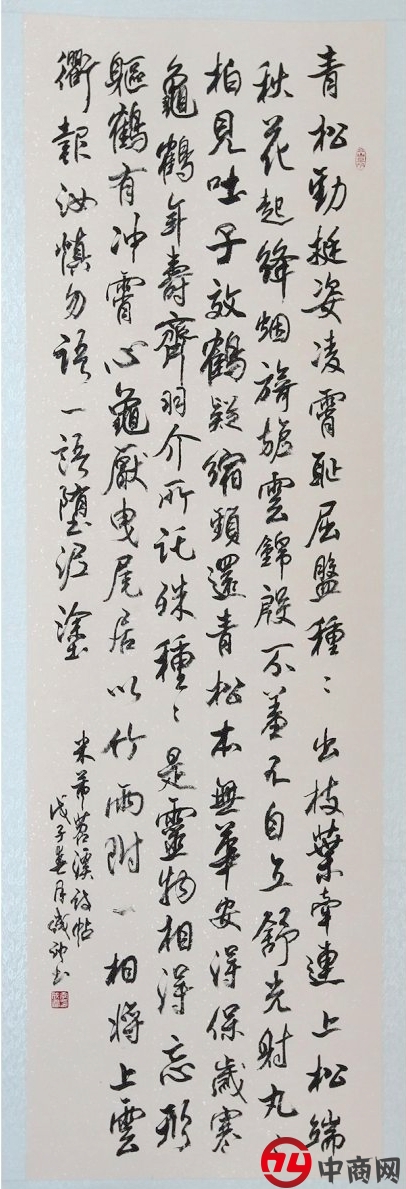 青松勁挺姿凌霄耻屈盤種〻出枝葉牽連上松端
秋花起絳烟旖旎雲錦殷不羞不自立舒光射丸〻
柏見吐子效鶴疑縮頸還青松本無華安得保歲寒
龜鶴年壽齊羽介所託殊種〻是靈物相得忘形
軀鶴有冲霄心龜厭曳尾居以竹兩附相將上雲
衢報汝慎勿語一語墮泥塗
米芾苕溪诗帖
戊子春月书
中商网